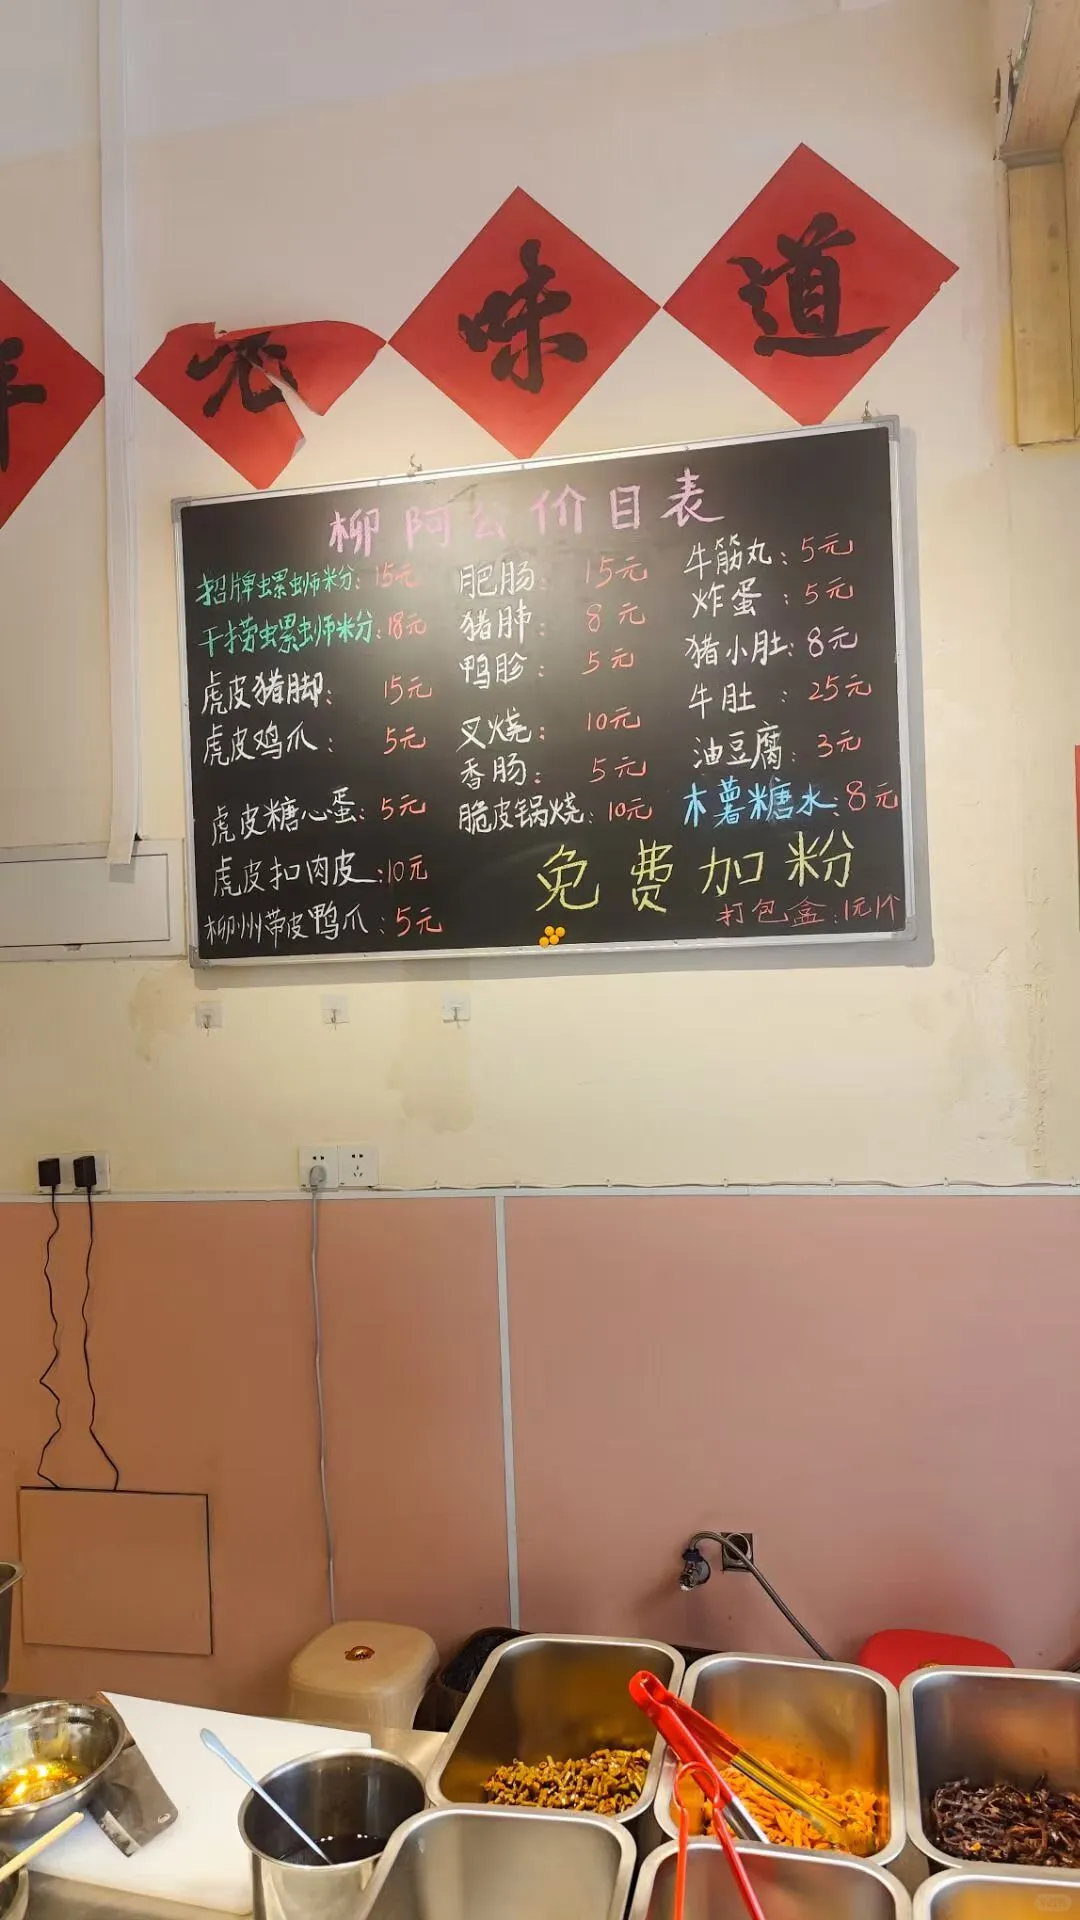 味 道
柳阿公价目表
招牌螺蛳粉:15元
干捞螺蛳粉:18元
虎皮猪脚:15元
虎皮鸡爪:5元
虎皮糖心蛋:5元
虎皮扣肉皮:10元
柳州带皮鸭爪:5元
肥肠:15元
猪肺:8元
鸭胗:5元
叉烧:10元
香肠:5元
脆皮锅烧:10元
牛筋丸:5元
炸蛋:5元
猪小肚:8元
牛肚:25元
油豆腐:3元
木薯糖水:8元
免费加粉
打包盒:1元1个